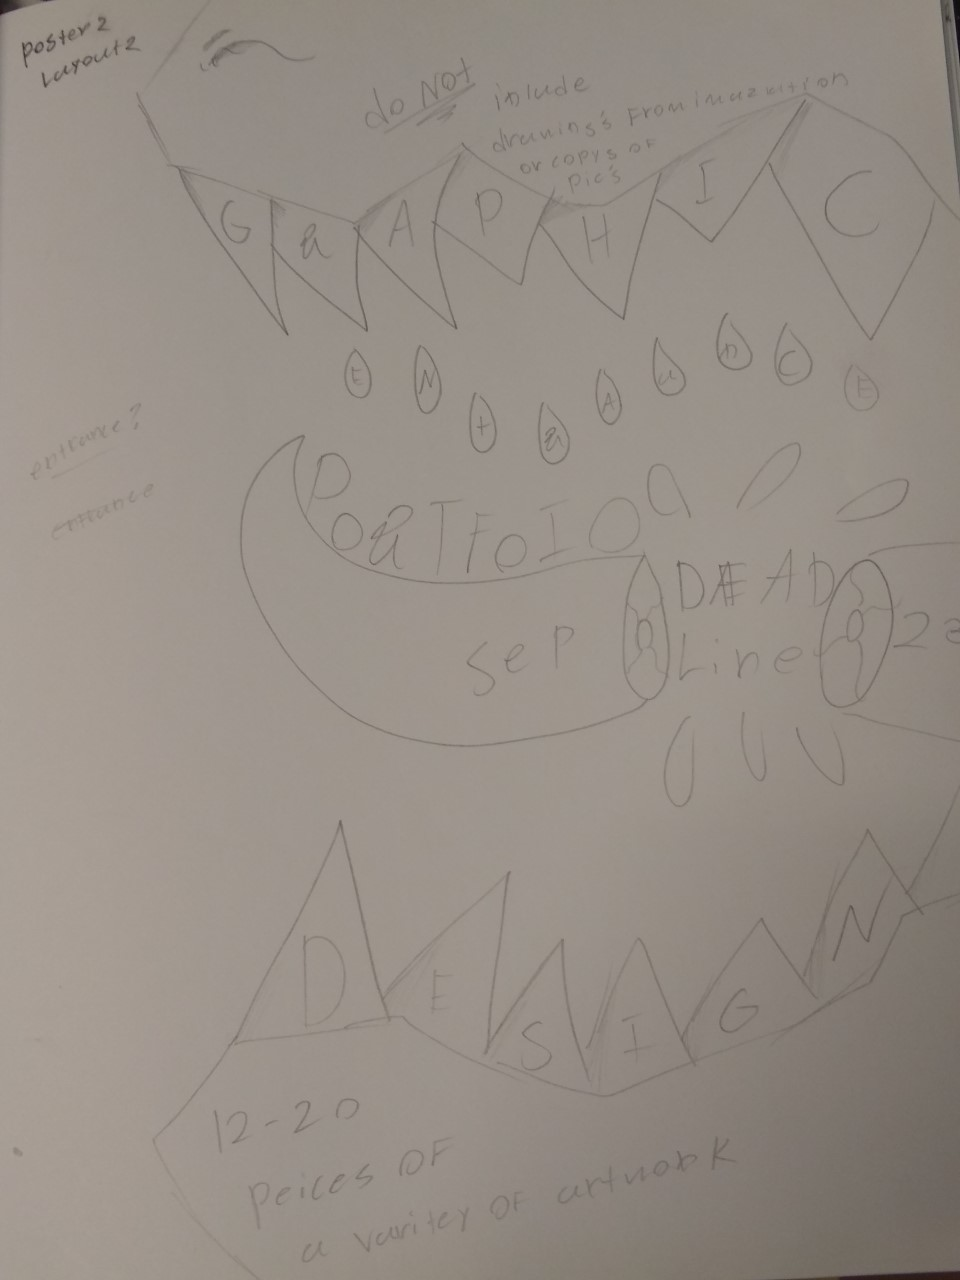 poster 2
Layout 2
do NOT inlude
drawing's From imazination
or copys of
pic's
GRAPHIC
ENtRANCE
entrance?
entrance
PORTFOIO
DEAD
Line
Sep
DESIGN
12-20
peices OF
a varitey OF artwork